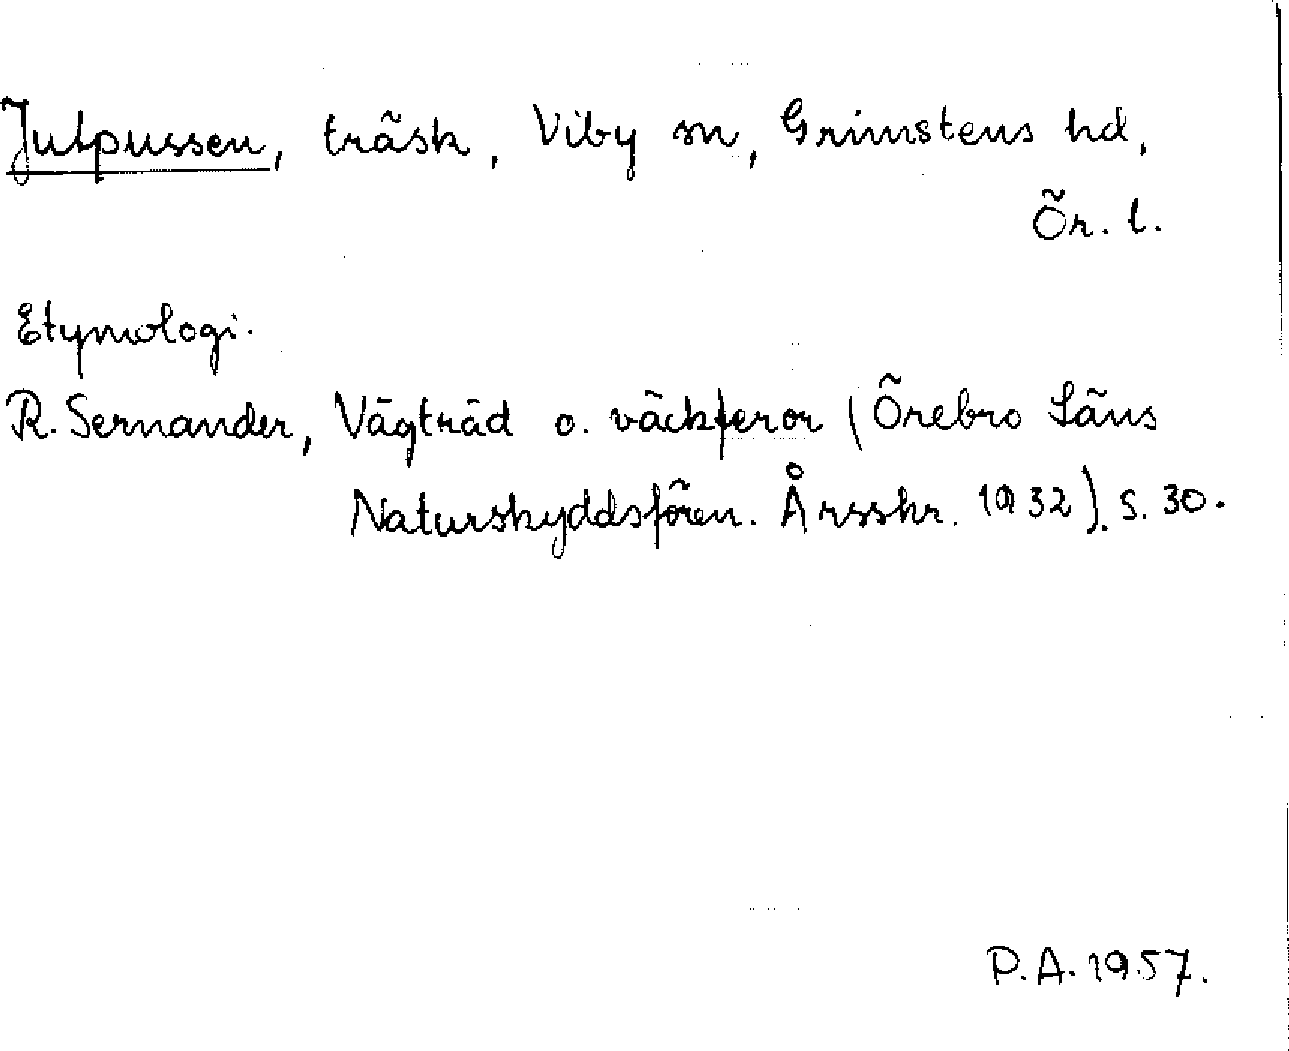 Jutpussen, träsk, Viby sn, Grimstens hd,
Ör. l.
Etymologi.
R. Sernander, Vägträd o. väckferor (Örebro Läns
Naturskyddsfören. Årsskr. 1932). s. 30.
P.A. 1957.